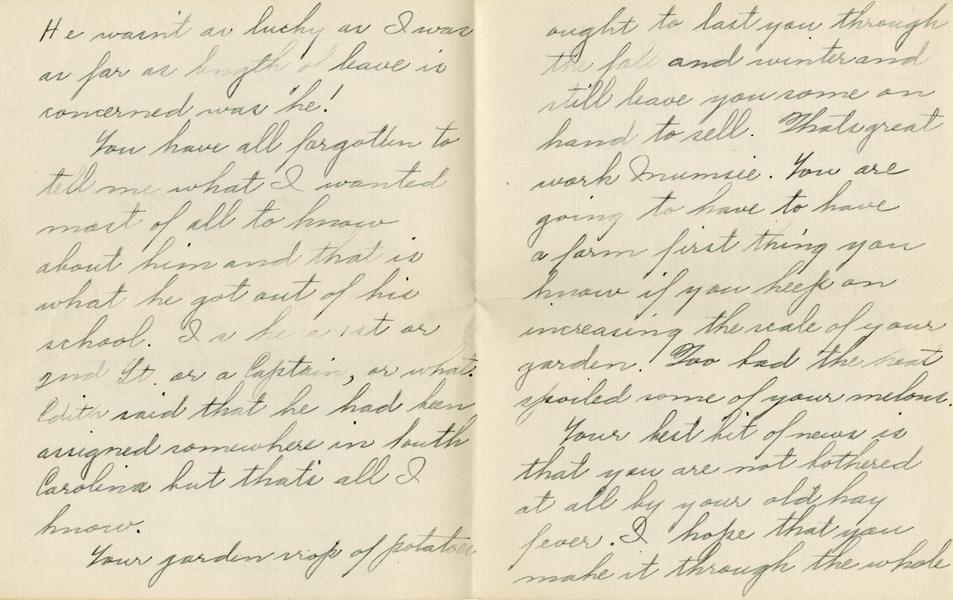 He wasn't as lucky as I was
as far as length of leave is
concerned was he!
You have all forgotten to
tell me what I wanted
most of all to know
about him and that is
what he got out of his
school. Is he a 1st or
2nd Lt. or a Captain, or what.
Edith said that he had been
assigned somewhere in South
Carolina but that's all I
know.
Your garden crop of potatoes
ought to last you through
the fall and winter and
still leave you some on
hand to sell. Thats great
work Mumsie. You are
going to have to have
a farm first thing you
know if you keep on
increasing the scale of your
garden. Too bad the heat
spoiled some of your melons.
Your best bit of news is
that you are not bothered
at all by your old hay
fever. I hope that you
make it through the whole